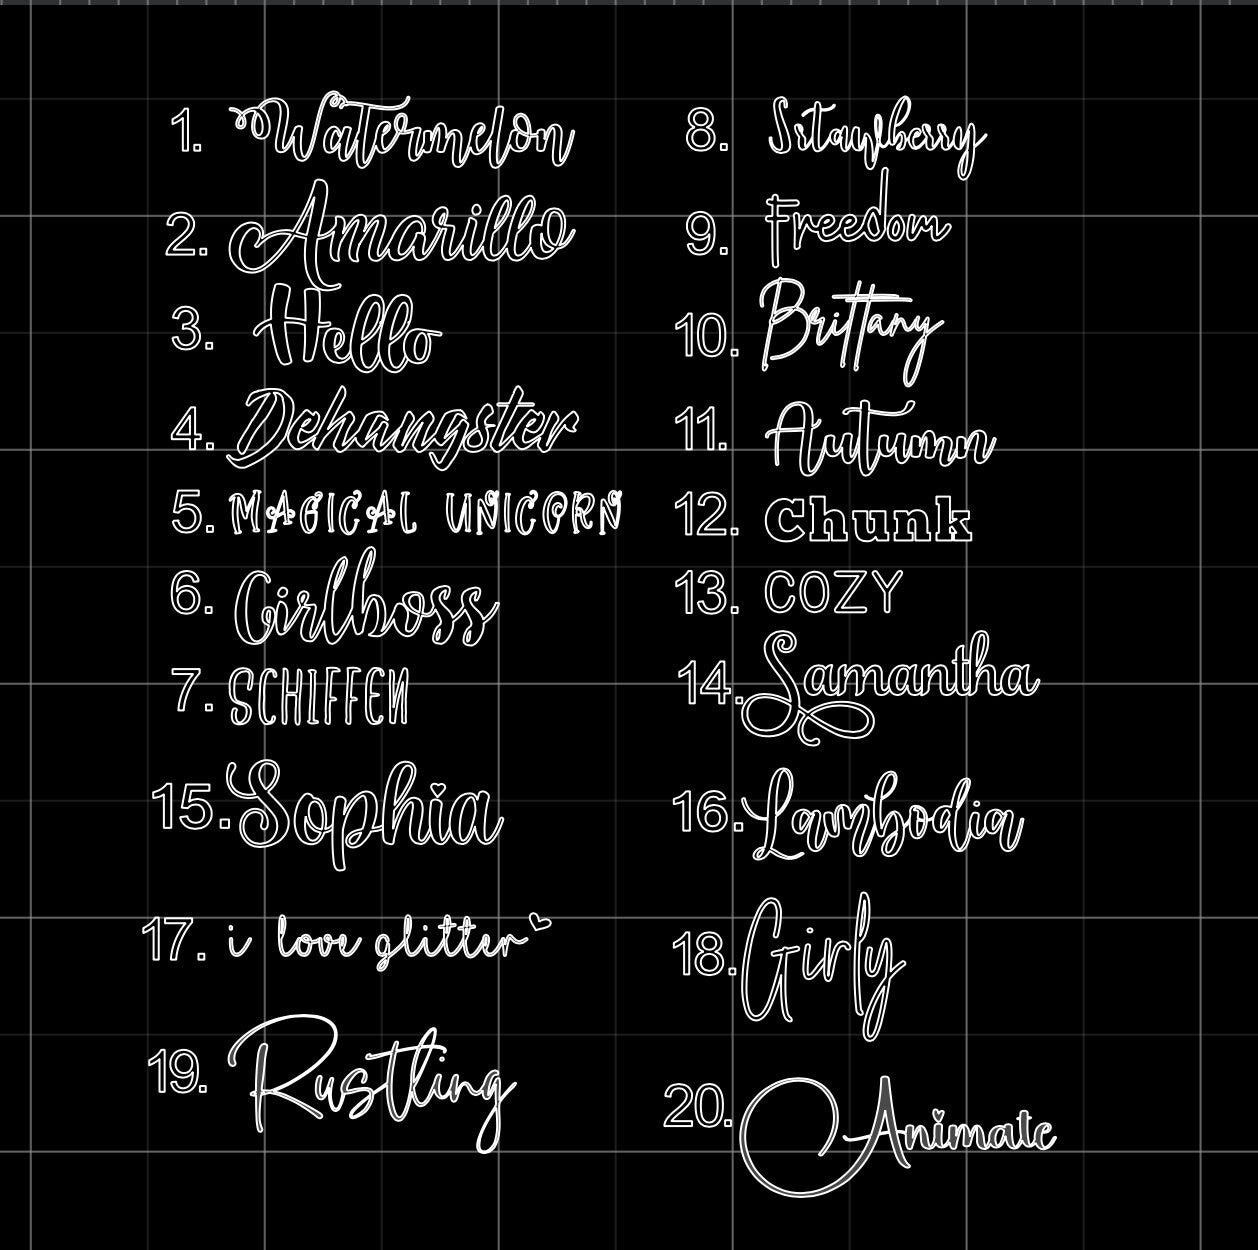 1. Watermelon
2. Amarillo
3. Hello
4. Dehangster
5. MAGICAL UNICORN
6. Girlboss
7. SCHIFFEN
15. Sophia
17. i love glitter
19. Rustling
8. Srtawberry
9. Freedom
10. Brittany
11. Autumn
12. Chunk
13. COZY
14. Samantha
16. Lambodia
18. Girly
20. Animate